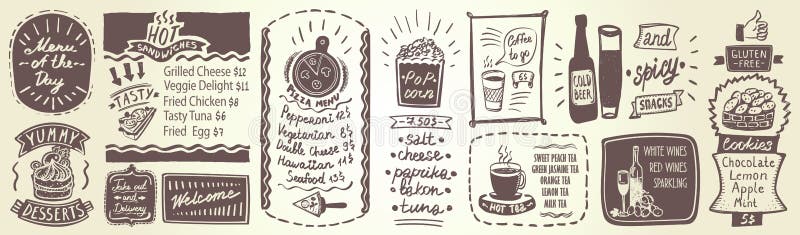 Menu
of the
Day
YUMMY
DESSERTS
HOT
SANDWICHES
TASTY
Grilled Cheese $12
Veggie Delight $11
Fried Chicken $8
Tasty Tuna $6
Fried Egg $7
Take out
and
Delivery
Welcome
PIZZA MENU
Pepperoni 12$
Vegetarian 8$
Double Cheese 9$
Hawaiian 11$
Seafood 13$
POP
corn
7.50$
salt
cheese
paprika
bakon
tuna
Coffee
to go
6$
HOT TEA
SWEET PEACH TEA
GREEN JASMINE TEA
ORANGE TEA
LEMON TEA
MILK TEA
COLD
BEER
and
spicy
SNACKS
WHITE WINES
RED WINES
SPARKLING
GLUTEN
FREE
Cookies
Chocolate
Lemon
Apple
Mint
5$